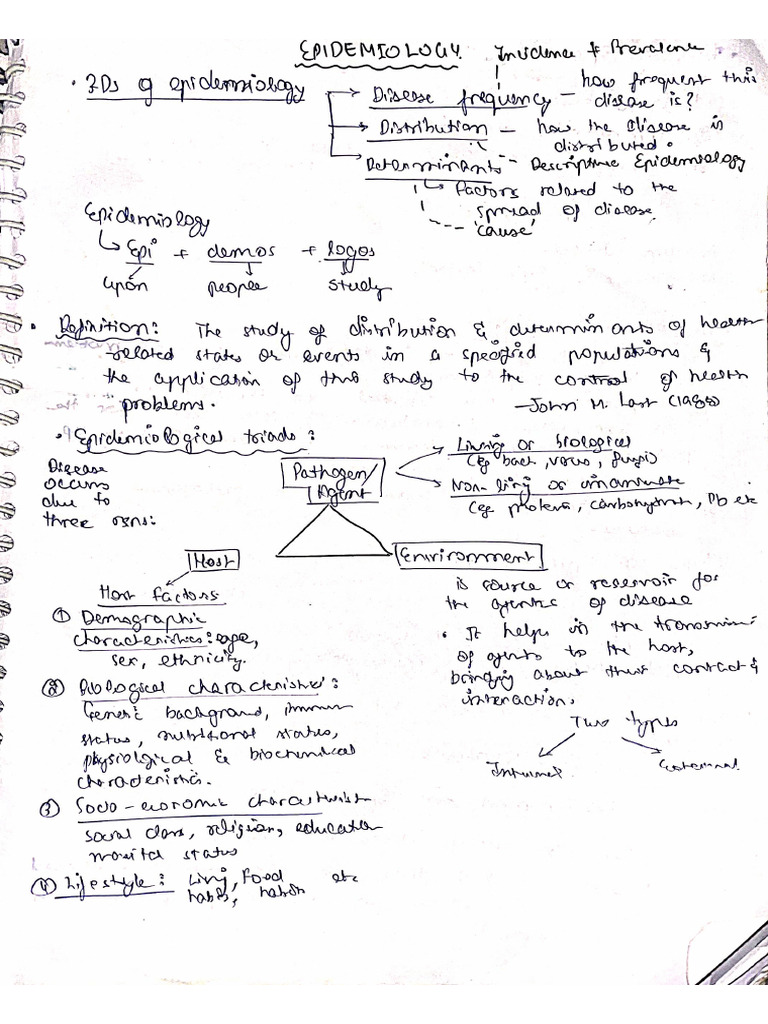 EPIDEMIOLOGY
Incidence & Prevalence
• 3Ds of epidemiology
→ Disease frequency – how frequent this disease is?
→ Distribution – how the disease is distributed.
-- Descriptive Epidemiology
→ Determinants
↳ factors related to the
spread of disease
--- 'cause'
Epidemiology
↳ Epi + demos + logos
upon people study
• Definition: The study of distribution & determinants of health
-related states or events in a specified populations &
the application of this study to the control of health
problems.
– John M. Last (1988)
• Epidemiological triads:
Disease
occurs
due to
three
Pathogen/
Agent
→ Living or biological
(eg bact, virus, fungi)
→ Non-living or inanimate
(eg protein, carbohydrate, Pb etc
Host
Environment
Host factors
① Demographic
characteristics: age,
sex, ethnicity.
② Biological characteristics:
Genetic background, immune
status, nutritional status,
physiological & biochemical
characteristics.
③ Socio-economic characteristics
social class, religion, education
marital status
④ Lifestyle: living, food etc
habits, habits
is source or reservoir for
the agents of disease
• It helps in the transmi:
of agents to the host,
bringing about their contact &
interaction.
Two types
Internal
External